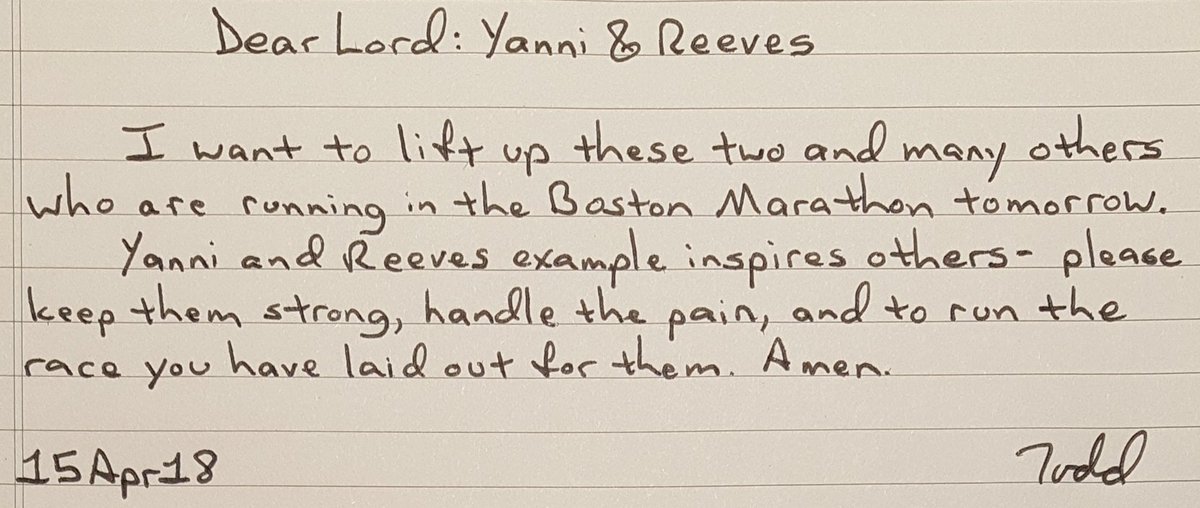 Dear Lord: Yanni & Reeves
I want to lift up these two and many others
who are running in the Boston Marathon tomorrow.
Yanni and Reeves example inspires others- please
keep them strong, handle the pain, and to run the
race you have laid out for them. Amen.
15Apr18 Todd